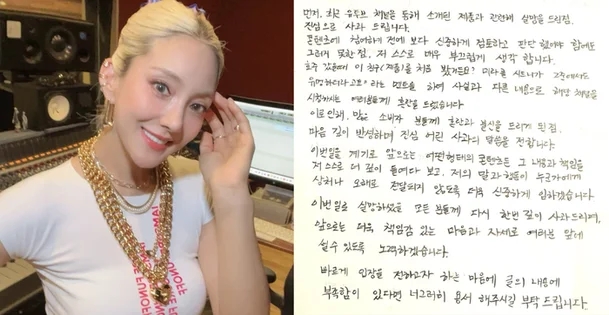 먼저, 최근 유튜브 채널을 통해 소개된 제품과 관련해 실망을 드린점,
진심으로 사과 드립니다.
콘텐츠에 참여하기 전에 보다 신중하게 검토하고 판단 했어야 함에도
그러지 못한 점, 저 스스로 매우 부끄럽게 생각 합니다.
호주 갔을때 이 친구(제품)를 처음 봤거든요?
유명하더라고요" 라는 멘트를 하여 사실과 다른 내용으로 해당 채널을
시청하시는 여러분들께 혼란을 드렸습니다
이로 인해, 많은 소비자 분들께 혼란과 불신을 드리게 된점,
마음 깊이 반성하며 진심 어린 사과의 말씀을 전합니다.
이번일을 계기로 앞으로는 어떤형태의 콘텐츠든 그 내용과 책임을
저 스스로 더 깊이 들여다 보고, 저의 말과 행동이 누군가에게
상처나 오해로 전달되지 않도록 더욱 신중하게 임하겠습니다
이번일로 실망하셨을 모든 분들께 다시 한번 깊이 사과드리며,
앞으로는 더욱 책임감 있는 마음과 자세로 여러분 앞에
설 수 있도록 노력하겠습니다.
바르게 입장을 전하고자 하는 마음에 글의 내용에
부족함이 있다면 너그러이 용서 해주시길 부탁 드립니다.